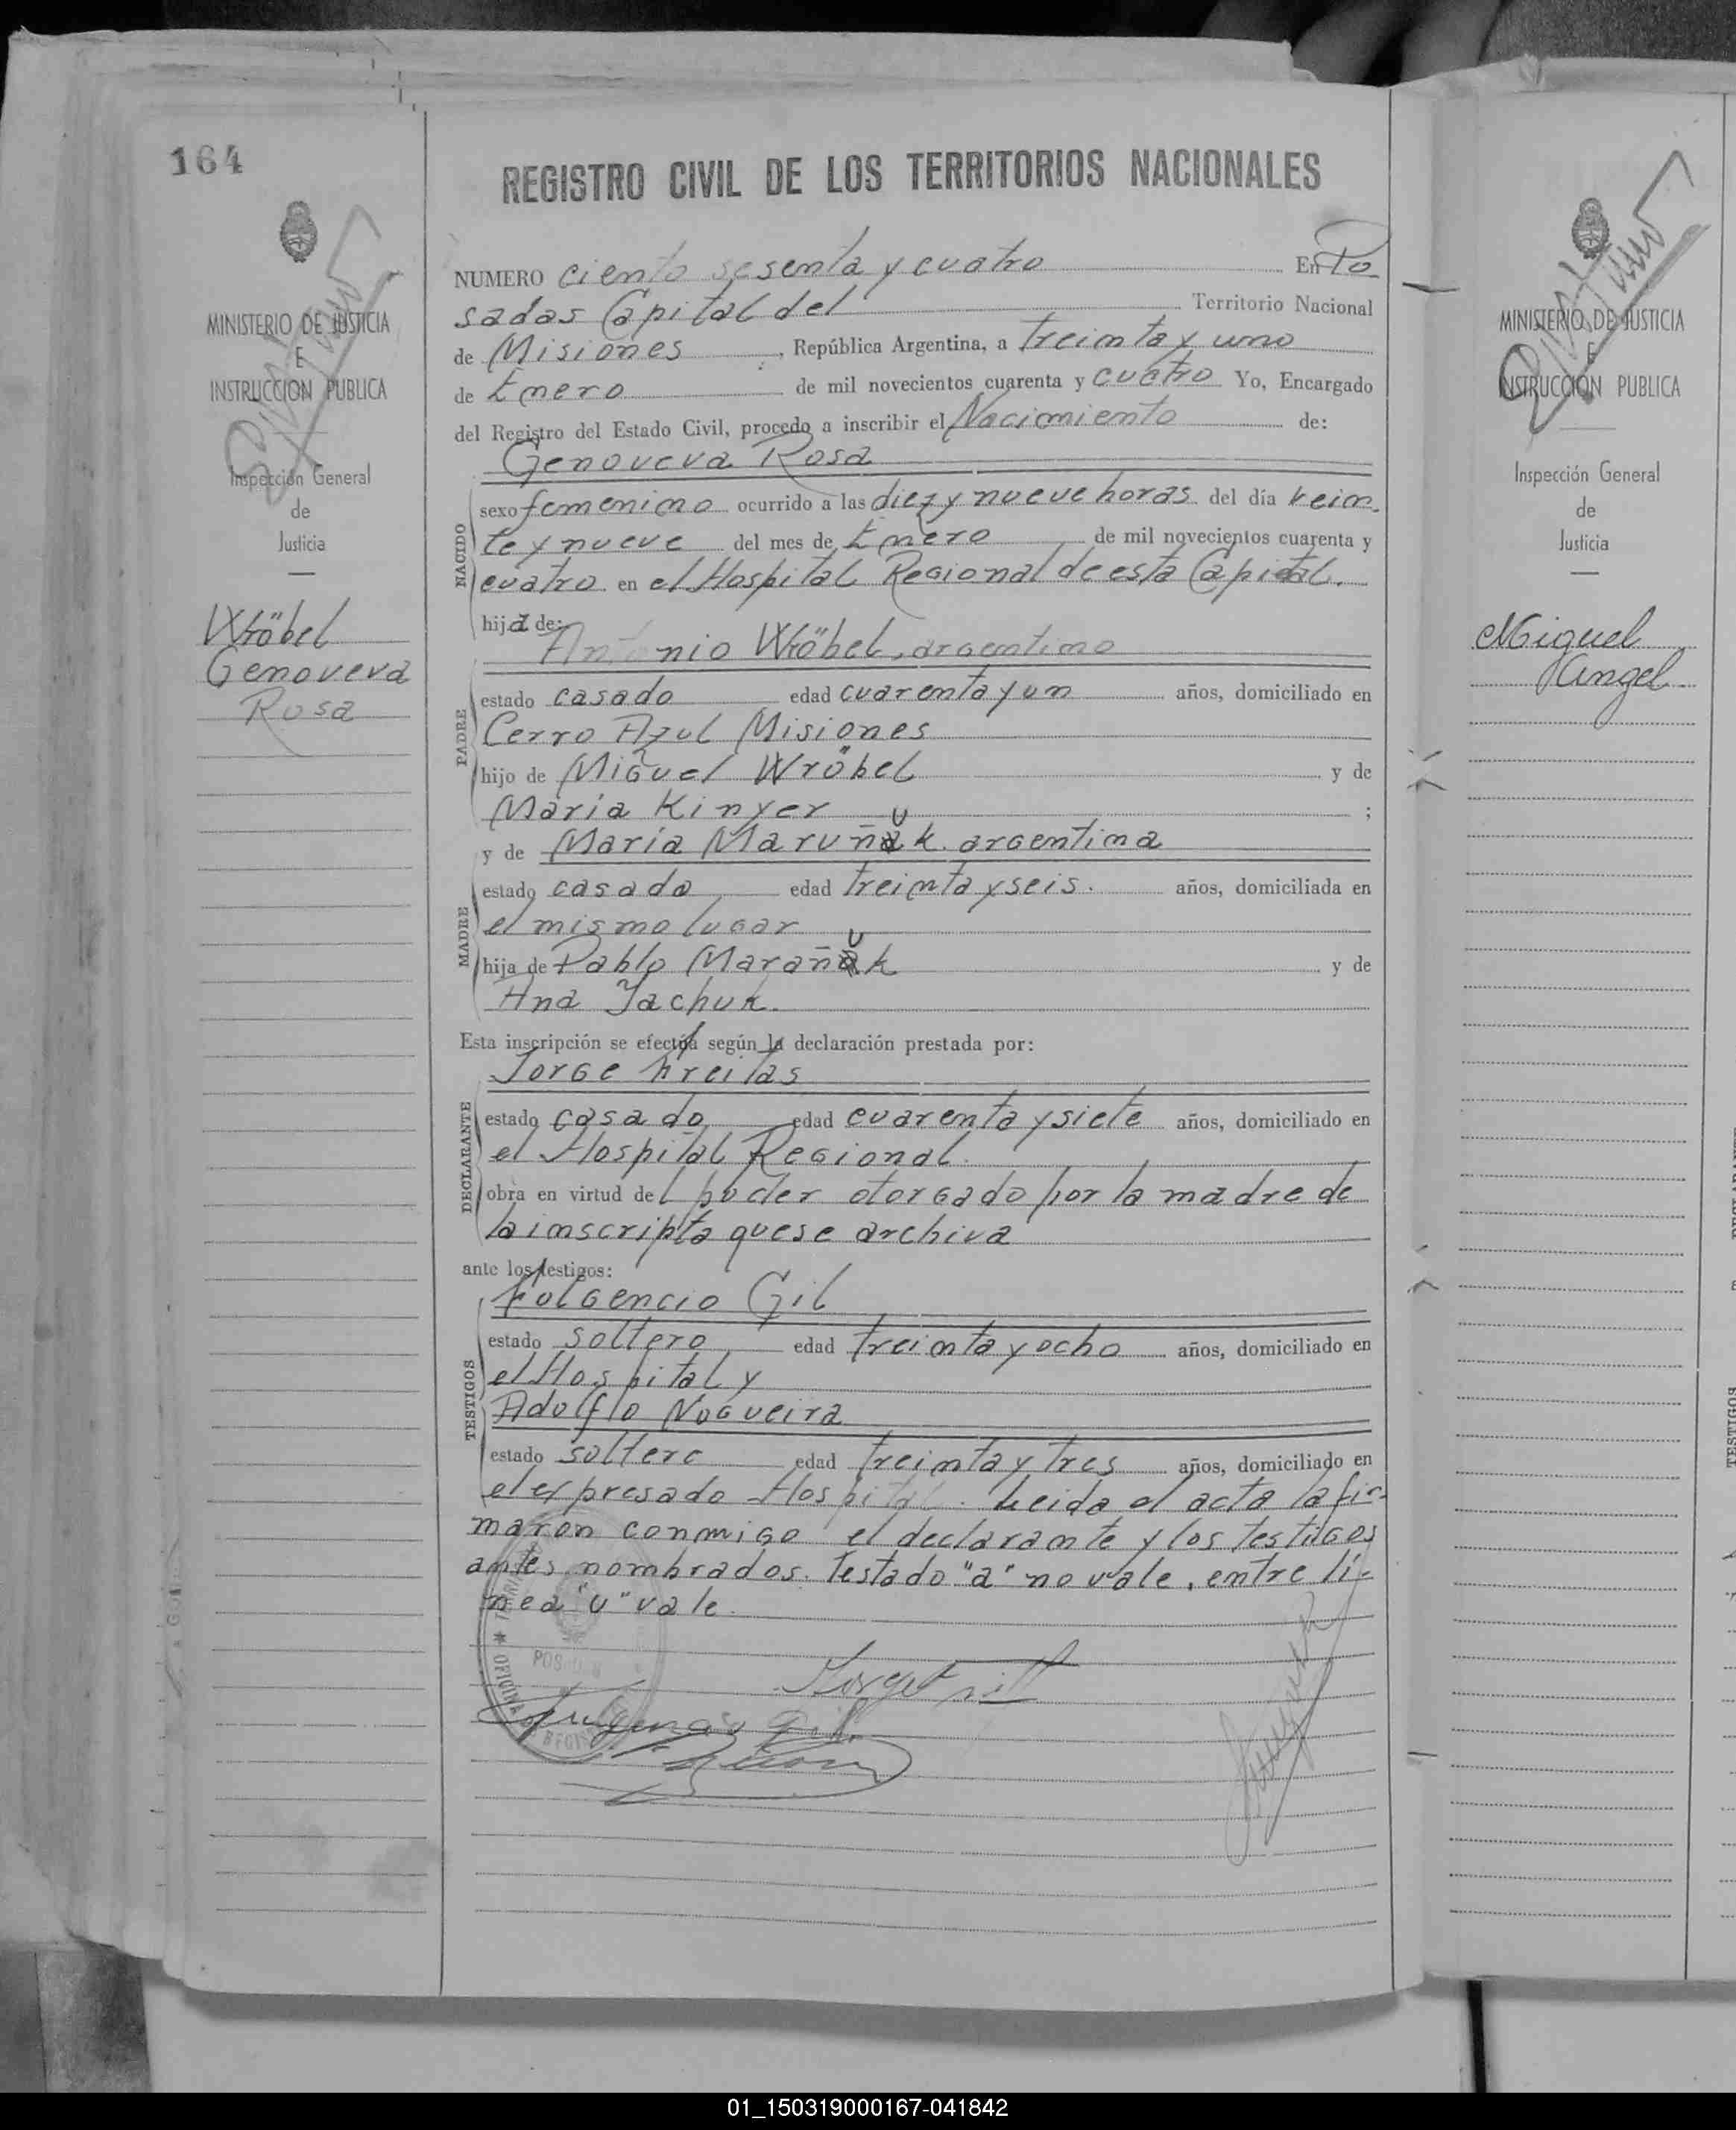 164
MINISTERIO DE JUSTICIA
E
INSTRUCCION PUBLICA
Inspección General
de
Justicia
Wröbel
Genoveva
Rosa
REGISTRO CIVIL DE LOS TERRITORIOS NACIONALES
NUMERO ciento sesenta y cuatro En Po
sadas Capital del Territorio Nacional
de Misiones, República Argentina, a treinta y uno
de Enero de mil novecientos cuarenta y cuatro Yo, Encargado
del Registro del Estado Civil, procedo a inscribir el Nacimiento de:
Genoveva Rosa
NACIDO
sexo femenino ocurrido a las diez y nueve horas del día vein
te y nueve del mes de Enero de mil novecientos cuarenta y
cuatro en el Hospital Regional de esta Capital.
hija de:
Antonio Wröbel, argentino
PADRE
estado casado edad cuarenta y un años, domiciliado en
Cerro Azul Misiones
hijo de Miguel Wröbel y de
María Kinyer ;
y de María Maruñuk argentina
MADRE
estado casada edad treinta y seis. años, domiciliada en
el mismo lugar
hija de Pablo Marañuk y de
Ana Jachuk.
Esta inscripción se efectúa según la declaración prestada por:
Jorge Freitas
DECLARANTE
estado casado edad cuarenta y siete años, domiciliado en
el Hospital Regional.
obra en virtud del poder otorgado por la madre de
la inscripta que se archiva
ante los testigos:
Fulgencio Gil
TESTIGOS
estado soltero edad treinta y ocho años, domiciliado en
el Hospital y
Adolfo Nogueira
estado soltero edad treinta y tres años, domiciliado en
el expresado Hospital. Leida el acta la fir-
maron conmigo el declarante y los testigos
antes nombrados. Testado "a" no vale, entre lí-
nea "u" vale.
MINISTERIO DE JUSTICIA
E
INSTRUCCION PUBLICA
Inspección General
de
Justicia
Miguel
Angel
TESTIGOS
01_150319000167-041842